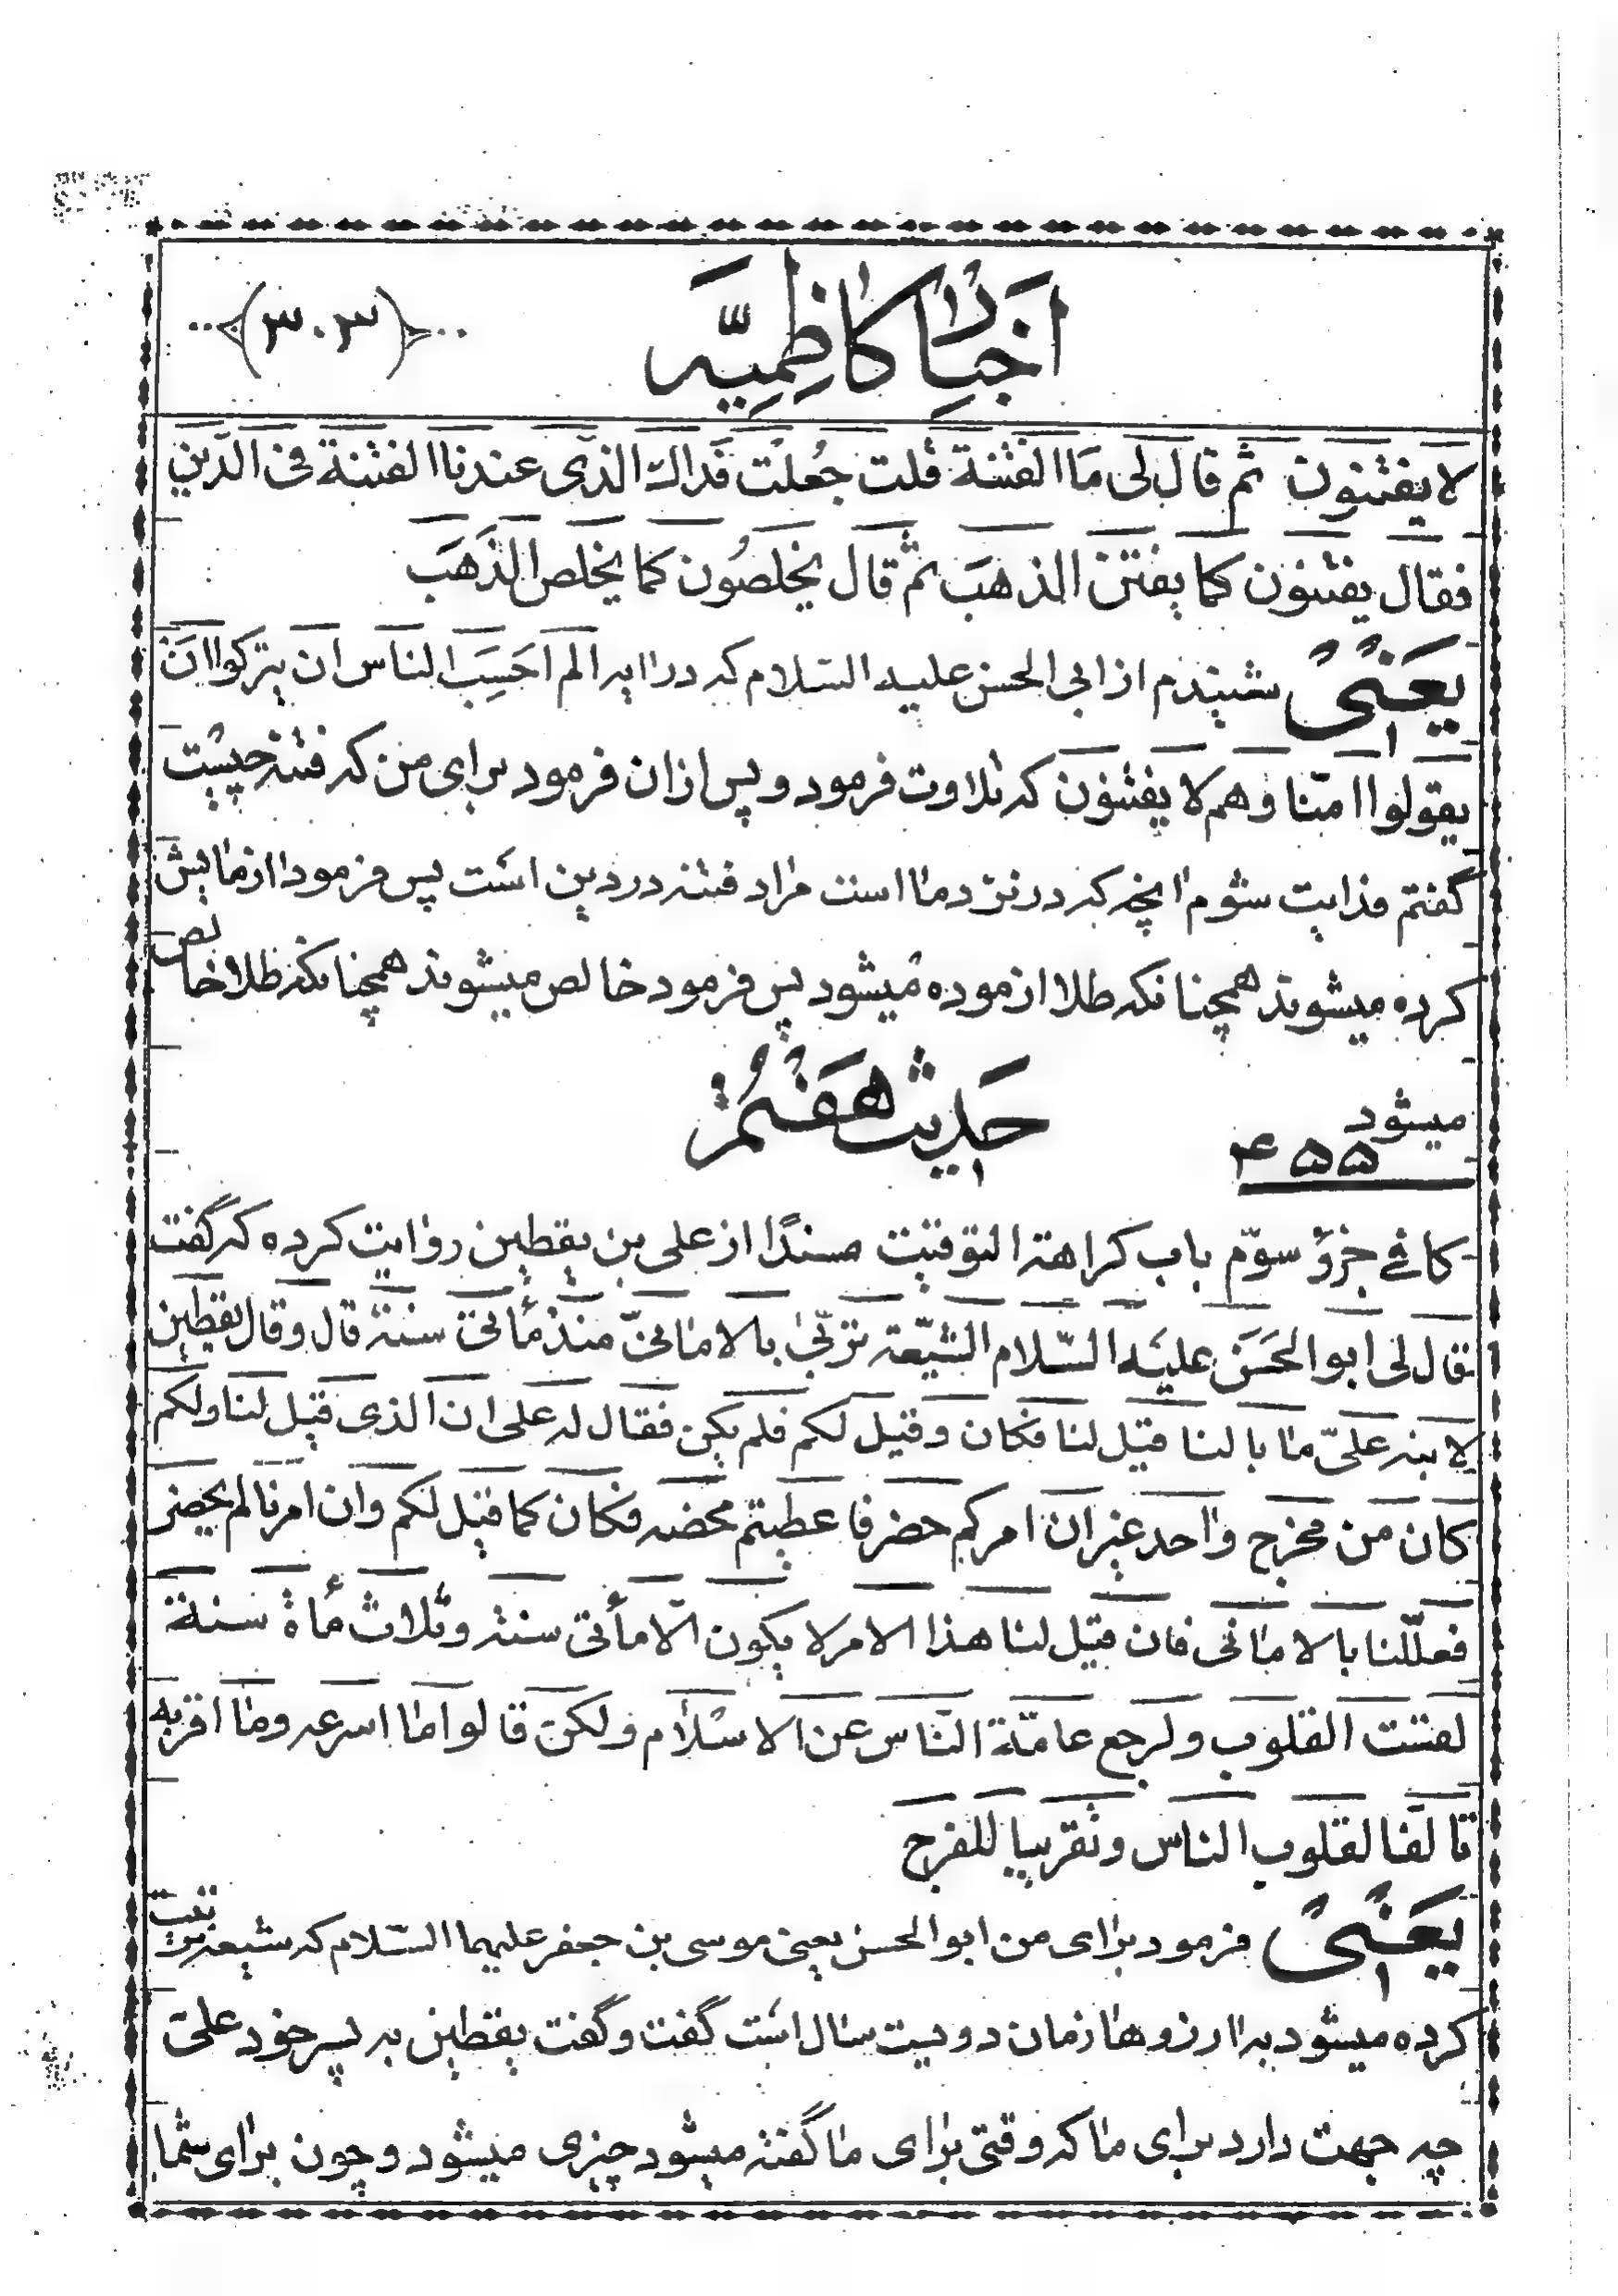 اخبار کاظمیّه
(۳۰۳)
لا یفتنون ثم قال لی مَا الفتنة قلت جُعلت فداك الذی عندنا الفتنة فی الدّین
فقال یفتنون كما یفتن الذهبَ ثمّ قال یخلصُون كما یخلص الذَهَب
یَعنی شنیدم از ابی الحسن علیه السّلام که در ایه الم احَسِبَ الناس ان یترکوا انَ
یقولوا امنّا و هم لا یفتنون که تلاوت فرمود و پس از ان فرمود برای من که فتنه چیست
گفتم فدایت شوم انچه که در نزد ما است مراد فتنه در دین است پس فرمود ازمایش
کرده میشوند همچنانکه طلا ازموده میشود پس فرمود خالص میشوند همچنانکه طلا خالص
میشود
حَدیث هَفتُم
۴۵۵
کافی جزؤ سوّم باب کراهة التوقیت مسندًا از علی بن یقطین روایت کرده که گفت
قال لی ابو الحَسَن علیَه السّلام الشیّعة تربّی بالامانیّ منذ مأتی سنة قال و قال یقطین
لابنه علیّ ما بالنا قیل لنا فکان و قیل لکم فلم یکن فقال له علی ان الذی قیل لنا و لکم
کان من مخرج واحد غیر ان امرکم حضر فاعطیتم محضه فکان کما قیل لکم و ان امرنا لم یحضر
فعلّلنا بالامانی فان قیل لنا هذا الامر لا یکون الّا مأتی سنة و ثلاث مأة سنة
لقست القلوب و لرجع عامّة النّاس عن الاسلام و لکن قالوا ما اسرعه و ما اقربه
تالفا لقلوب الناس و تقریبا للفرج
یَعنی فرمود برای من ابو الحسن یعنی موسی بن جعفر علیهما السّلام که شیعه تربیت
کرده میشود به ارزوها زمان دویست سال است گفت و گفت یقطین به پسر خود علی
چه جهت دارد برای ما که وقتی برای ما گفته میشود چیزی میشود و چون برای شما